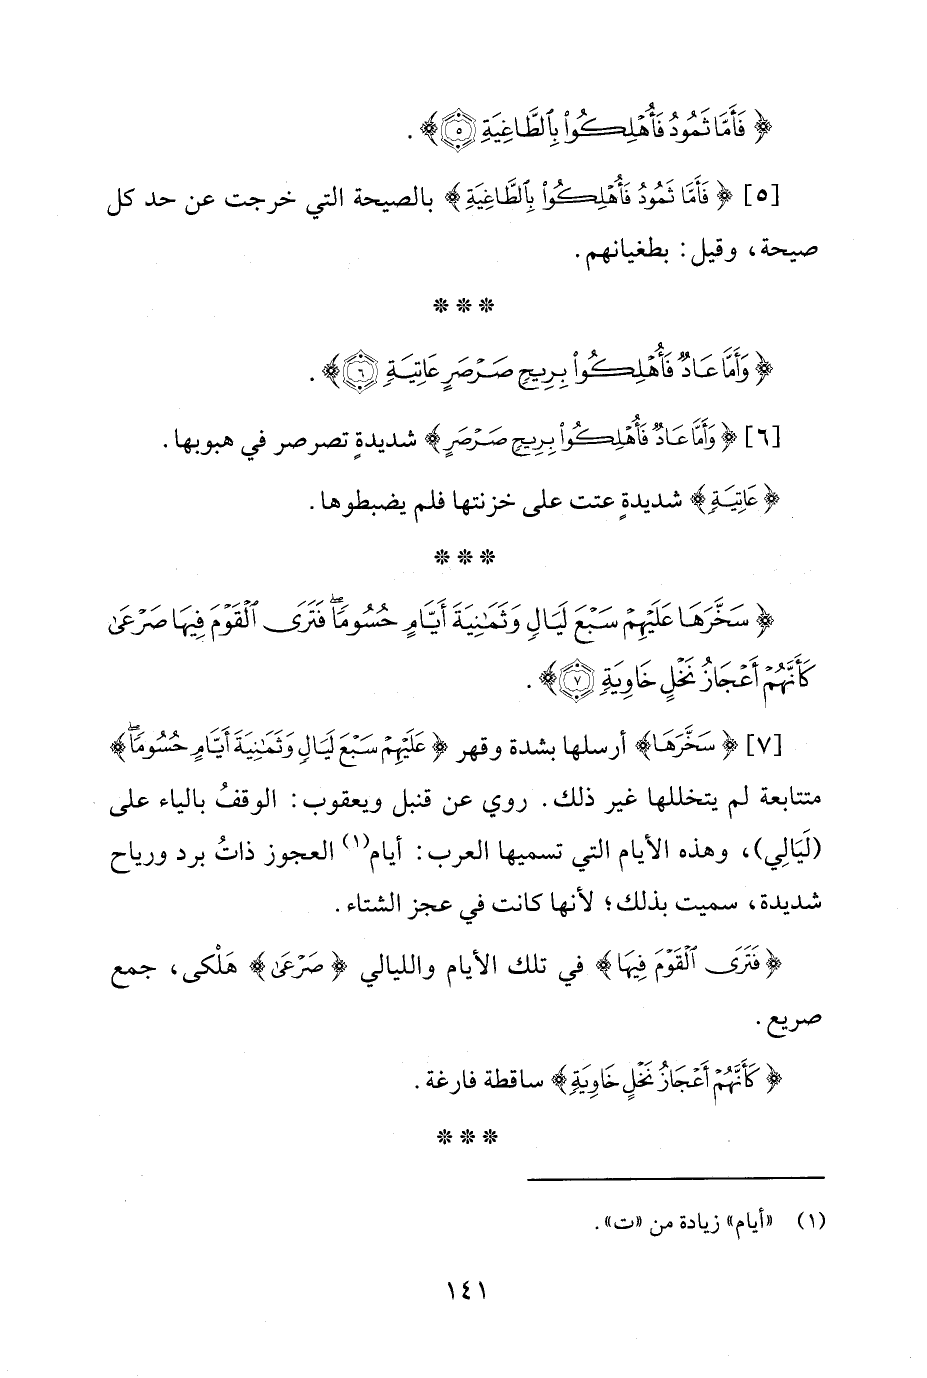 ﴿ فَأَمَّا ثَمُودُ فَأُهْلِكُوا۟ بِٱلطَّاغِيَةِ ۝٥ ﴾ .
[٥] ﴿ فَأَمَّا ثَمُودُ فَأُهْلِكُوا۟ بِٱلطَّاغِيَةِ ﴾ بالصيحة التي خرجت عن حد كل
صيحة، وقيل: بطغيانهم.
* * *
﴿ وَأَمَّا عَادٌ فَأُهْلِكُوا۟ بِرِيحٍ صَرْصَرٍ عَاتِيَةٍ ۝٦ ﴾ .
[٦] ﴿ وَأَمَّا عَادٌ فَأُهْلِكُوا۟ بِرِيحٍ صَرْصَرٍ ﴾ شديدةٍ تصرصر في هبوبها.
﴿ عَاتِيَةٍ ﴾ شديدةٍ عتت على خزنتها فلم يضبطوها.
* * *
﴿ سَخَّرَهَا عَلَيْهِمْ سَبْعَ لَيَالٍ وَثَمَٰنِيَةَ أَيَّامٍ حُسُومًاۖ فَتَرَى ٱلْقَوْمَ فِيهَا صَرْعَىٰ
كَأَنَّهُمْ أَعْجَازُ نَخْلٍ خَاوِيَةٍ ۝٧ ﴾ .
[٧] ﴿ سَخَّرَهَا ﴾ أرسلها بشدة وقهر ﴿ عَلَيْهِمْ سَبْعَ لَيَالٍ وَثَمَٰنِيَةَ أَيَّامٍ حُسُومًاۖ ﴾
متتابعة لم يتخللها غير ذلك. روي عن قنبل ويعقوب: الوقفُ بالياء على
(لَيَالِي)، وهذه الأيام التي تسميها العرب: أيام(١) العجوز ذاتُ برد ورياح
شديدة، سميت بذلك؛ لأنها كانت في عجز الشتاء.
﴿ فَتَرَى ٱلْقَوْمَ فِيهَا ﴾ في تلك الأيام والليالي ﴿ صَرْعَىٰ ﴾ هَلْكى، جمع
صريع.
﴿ كَأَنَّهُمْ أَعْجَازُ نَخْلٍ خَاوِيَةٍ ﴾ ساقطة فارغة.
* * *
(١) «أيام» زيادة من «ت».
١٤١